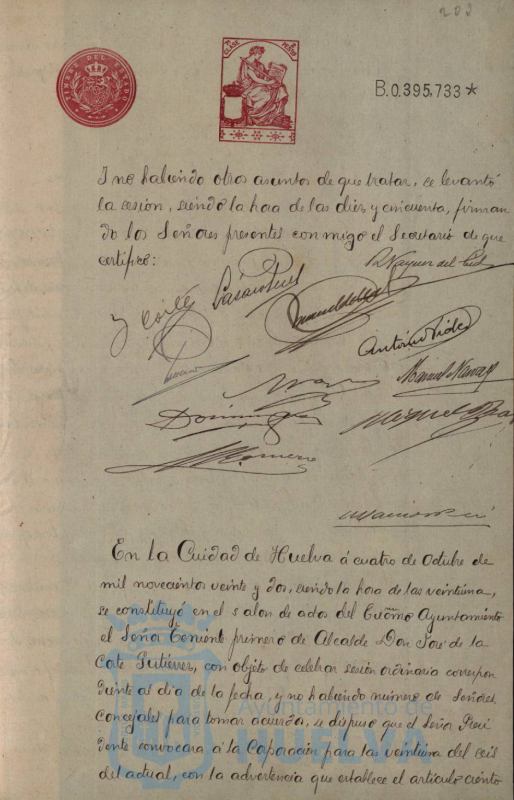 202
TIMBRE DEL ESTADO
CLASE
PESETA
B.0.395.733*
I no habiendo otros asuntos de que tratar, se levantó
la sesion, siendo la hora de las diez y cincuenta, firman
do los Señores presentes conmigo el Secretario de que
certifico:
Antonio
Manuel Navas
Miguel
Dominguez
Romero
En la Cuidad de Huelva á cuatro de Octubre de
mil novecientos veinte y dos, siendo la hora de las veintiuna,
se constituyó en el salon de actos del Excmo Ayuntamiento
el Señor Teniente primero de Alcalde Don José de la
Corte Gutierrez, con objeto de celebrar sesión ordinaria correspon
diente al dia de la fecha, y no habiendo número de Señores
Concejales para tomar acuerdo, se dispuso que el Señor Presi
dente convocara a la Coporación para las veintiuna del seis
del actual, con la advertencia que establece el artículo ciento
Ayuntamiento de
HUELVA